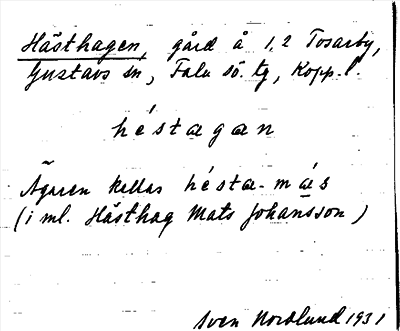 Hästhagen, gård å 1,2 Tosarby,
Gustavs sn, Falu sö. tg, Kopp. l.
héstagan
Ägaren kallas hésta-más
(i ml. Hästhag Mats Johansson)
Sven Nordlund 1931